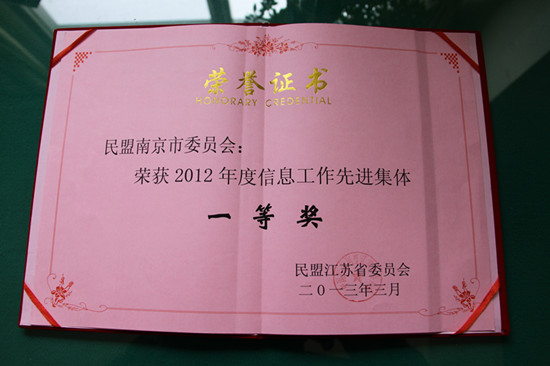 荣誉证书
HONORARY CREDENTIAL
民盟南京市委员会：
荣获 2012 年度信息工作先进集体
一等奖
民盟江苏省委员会
二〇一三年三月